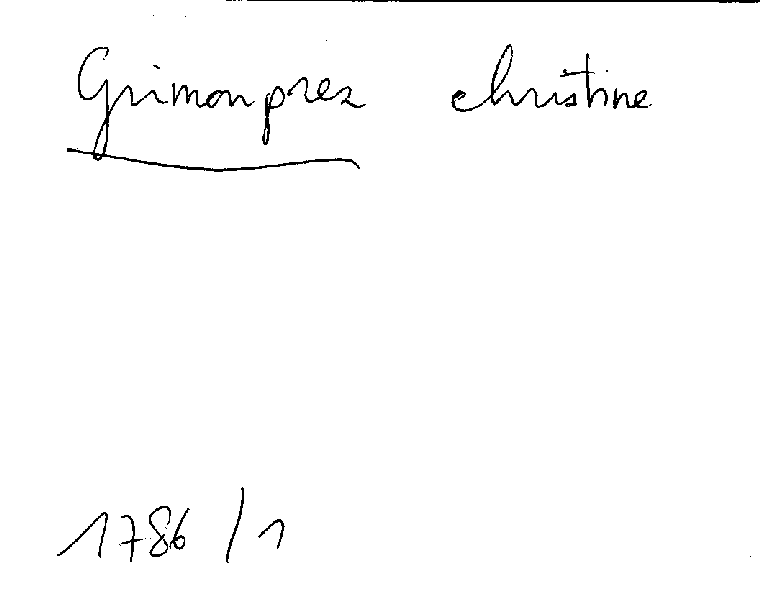 Grimonprez christine
1786 / 1